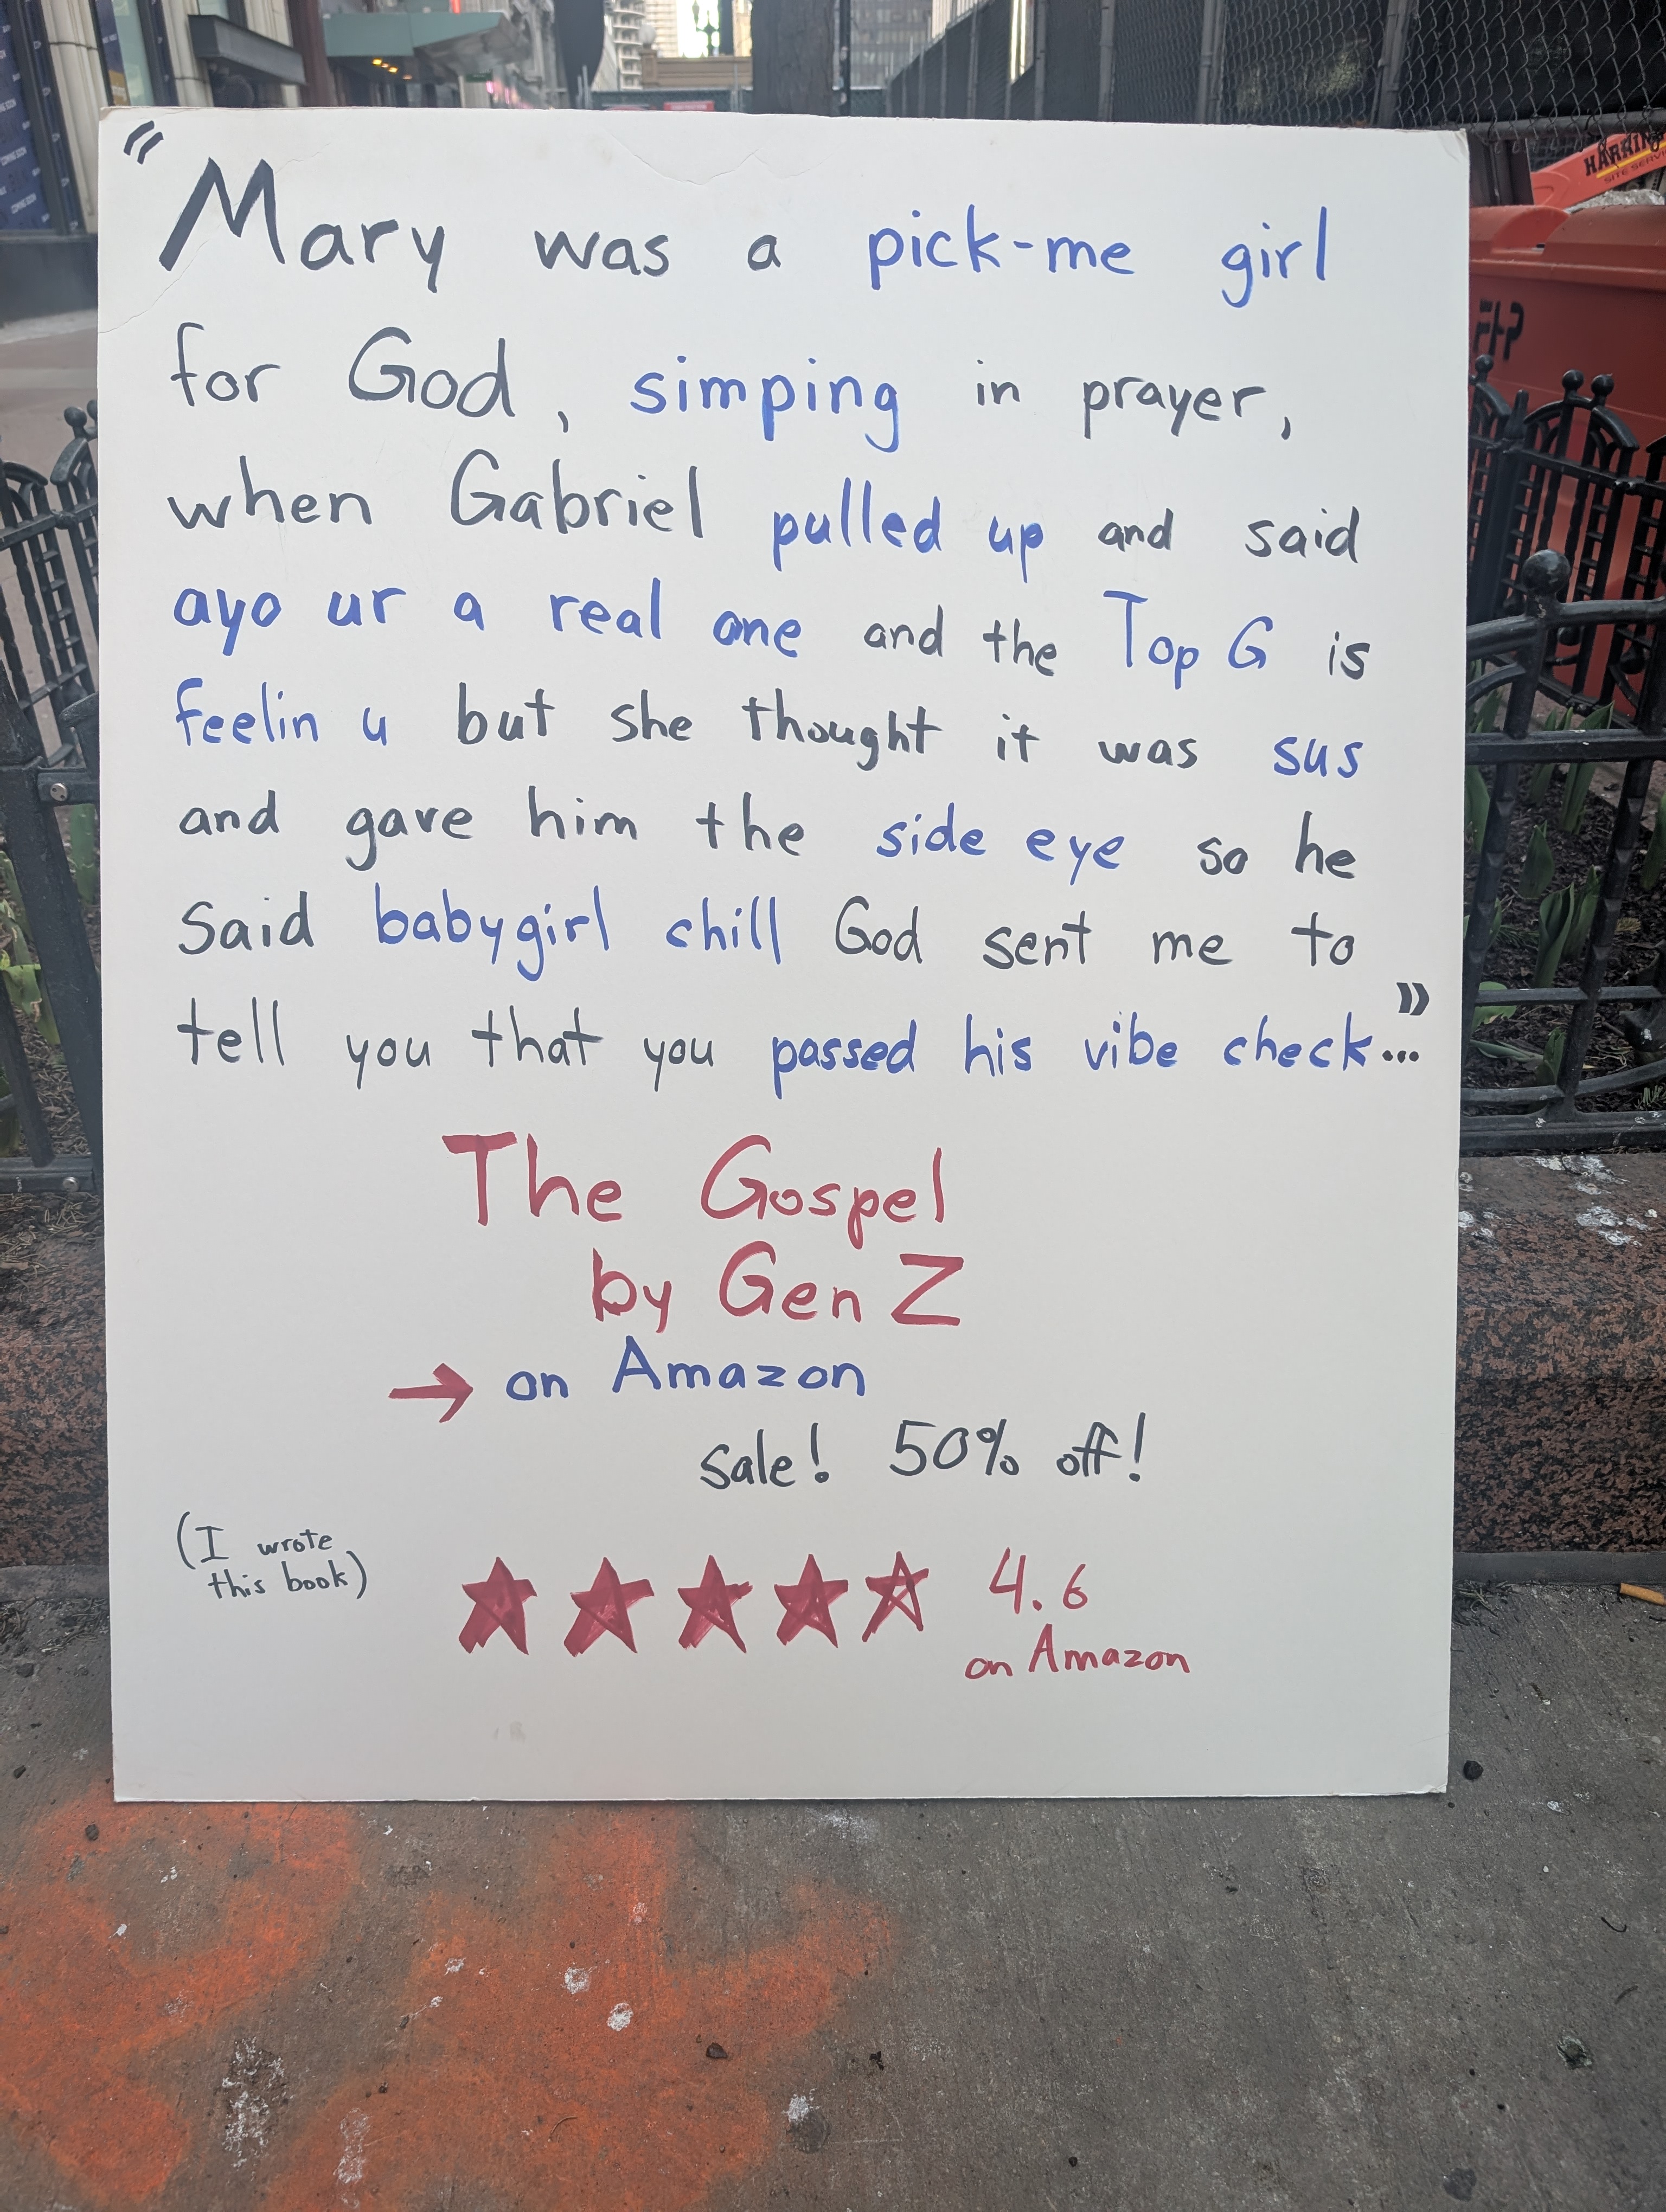 "Mary was a pick-me girl
for God, simping in prayer,
when Gabriel pulled up and said
ayo ur a real one and the Top G is
feelin u but she thought it was sus
and gave him the side eye so he
said babygirl chill God sent me to
tell you that you passed his vibe check..."
The Gospel
by Gen Z
→ on Amazon
sale! 50% off!
(I wrote
this book)
4.6
on Amazon
COMING SOON